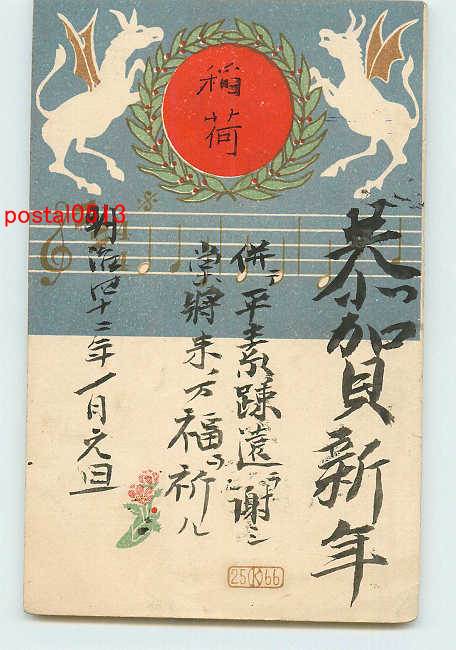 稲荷
恭加賀新年
併テ平素疎遠ヲ謝シ
堂將来ノ万福ヲ祈ル
明治四十二年一月元旦
postal0513
25 K 66